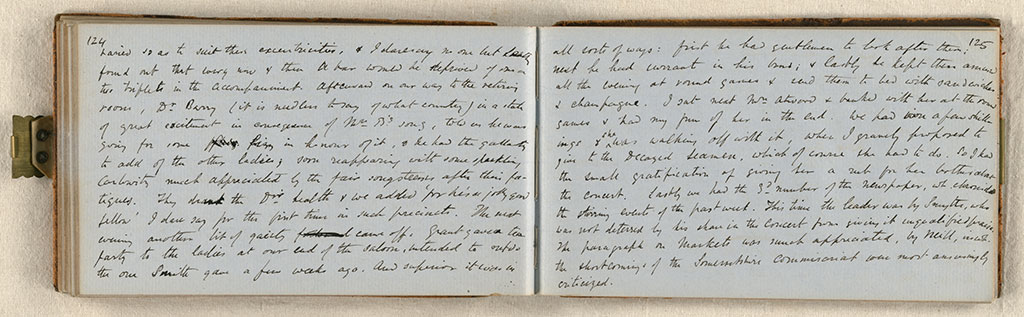 124
varied so as to suit their excentricities, & I dare say no one but
found out that every now & then the bar would be deprived of one or
two triplets in the accompaniment. Afterward on our way to the retiring
room, Dr. Barry (it is needless to say of what country) in a state
of great excitement in consequence of Mrs. B's song, told us he was
going for some in honour of it, & he had the gallantry
to add of the other ladies; soon reappearing with some sparkling
much appreciated by the fair songstresses after their fa-
tigues. They drank the Dr's health & we added 'for he's a jolly good
fellow' I dare say for the first time in such precincts. The next
evening another bit of gaiety came off. Grant gave a tea
party to the ladies at our end of the saloon, intended to outdo
the one Smith gave a few weeks ago. And superior it was in
125
all sorts of ways: first he had gentlemen to look after them;
next he had currant in his buns; & lastly he kept them amused
all the evening at round games & send them to bed with sandwiches
& champagne. I sat next Mrs. Atwood & banked with her at the round
games & had my fun of her in the end. We had won a few shill-
ings & she was walking off with it, when I gravely proposed to
give to the Decayed Seamen, which of course she had to do. So I had
the small gratification of giving her a rub for her bother about
the concert. Lastly we had the 3d number of the newspaper, wh.
the stirring events of the past week. This time the leader was by Smythe, who
was not deterred by his share in the concert from giving it unqualified praise.
The paragraph on Markets was much appreciated, by Neill, in wh.
the shortcomings of the Somersetshire Commissariat were most amusingly
criticized.